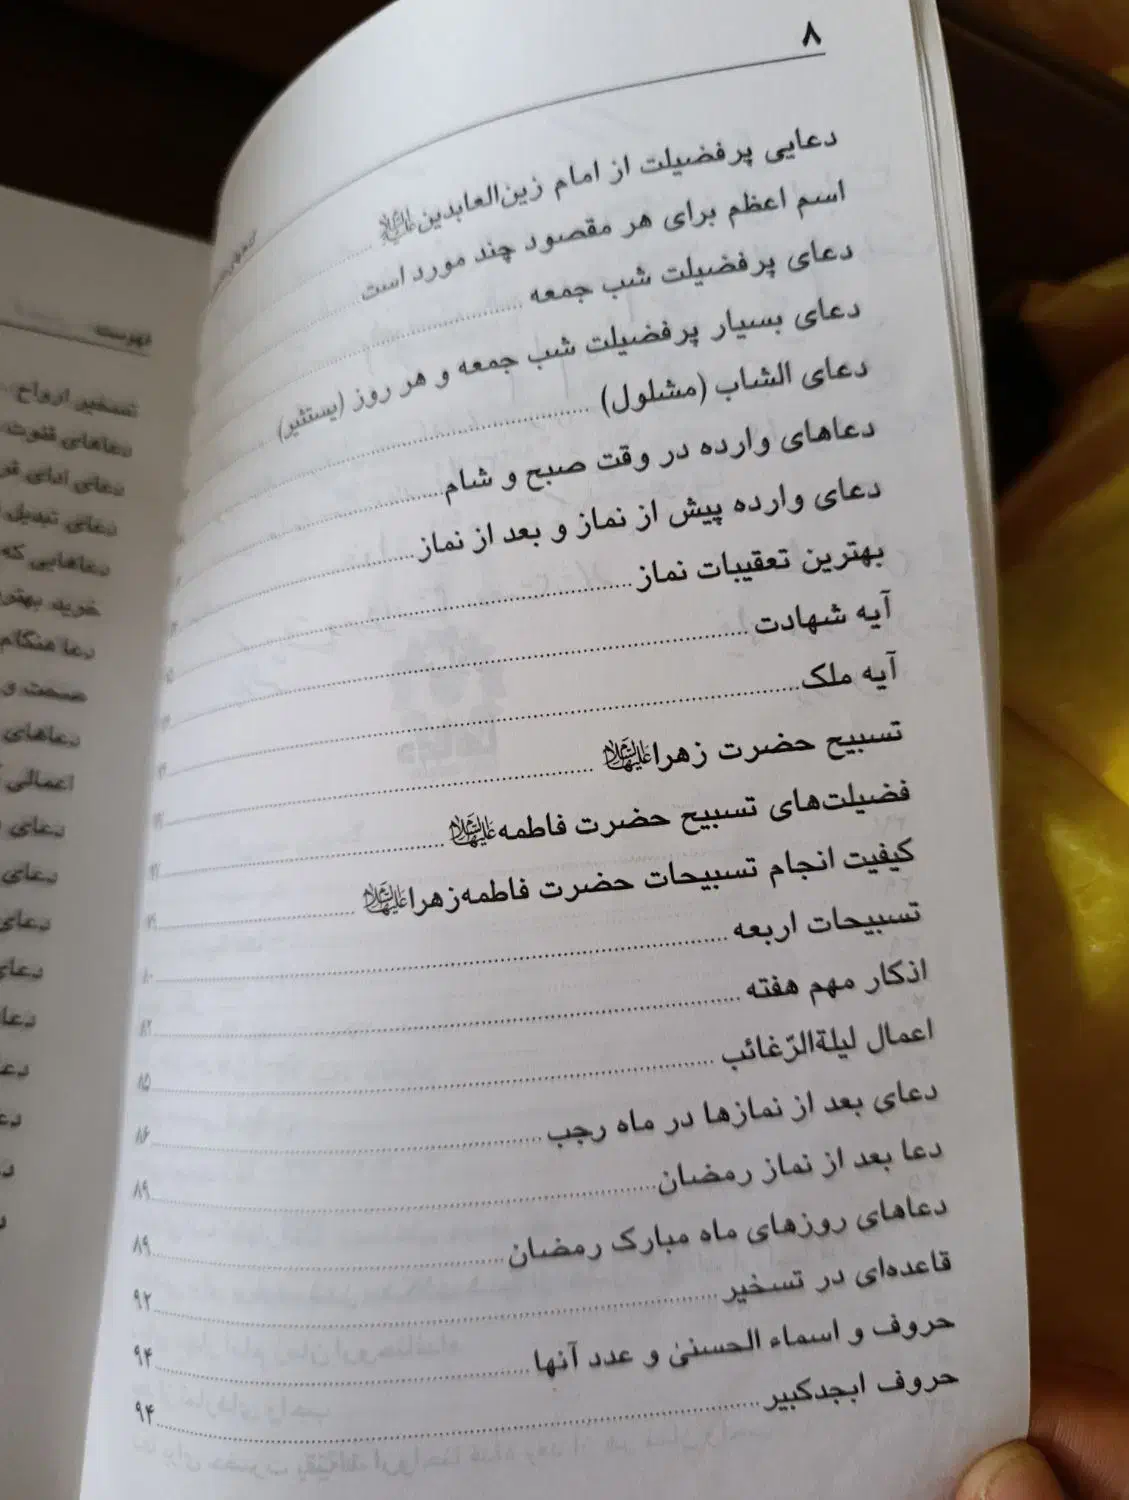 ۸
دعایی پرفضیلت از امام زین‌العابدین علیه‌السلام
اسم اعظم برای هر مقصود چند مورد است
دعای پرفضیلت شب جمعه
دعای بسیار پرفضیلت شب جمعه و هر روز (یستثیر)
دعای الشاب (مشلول)
دعاهای وارده در وقت صبح و شام
دعای وارده پیش از نماز و بعد از نماز
بهترین تعقیبات نماز
آیه شهادت
آیه ملک
تسبیح حضرت زهرا علیهاالسلام
فضیلت‌های تسبیح حضرت فاطمه علیهاالسلام
کیفیت انجام تسبیحات حضرت فاطمه‌زهرا علیهاالسلام
تسبیحات اربعه
اذکار مهم هفته ۸۲
اعمال لیلةالرّغائب ۸۵
دعای بعد از نمازها در ماه رجب ۸۶
دعا بعد از نماز رمضان ۸۹
دعاهای روزهای ماه مبارک رمضان ۸۹
قاعده‌ای در تسخیر ۹۲
حروف و اسماء الحسنیٰ و عدد آنها ۹۴
حروف ابجدکبیر ۹۴
فهرست
تسخیر ارواح
دعاهای قنوت
دعای ادای
دعای تبدیل
دعاهایی که
خرید
دعا هنگام
دعاهای
اعمالی
دعای
دعای
دعای